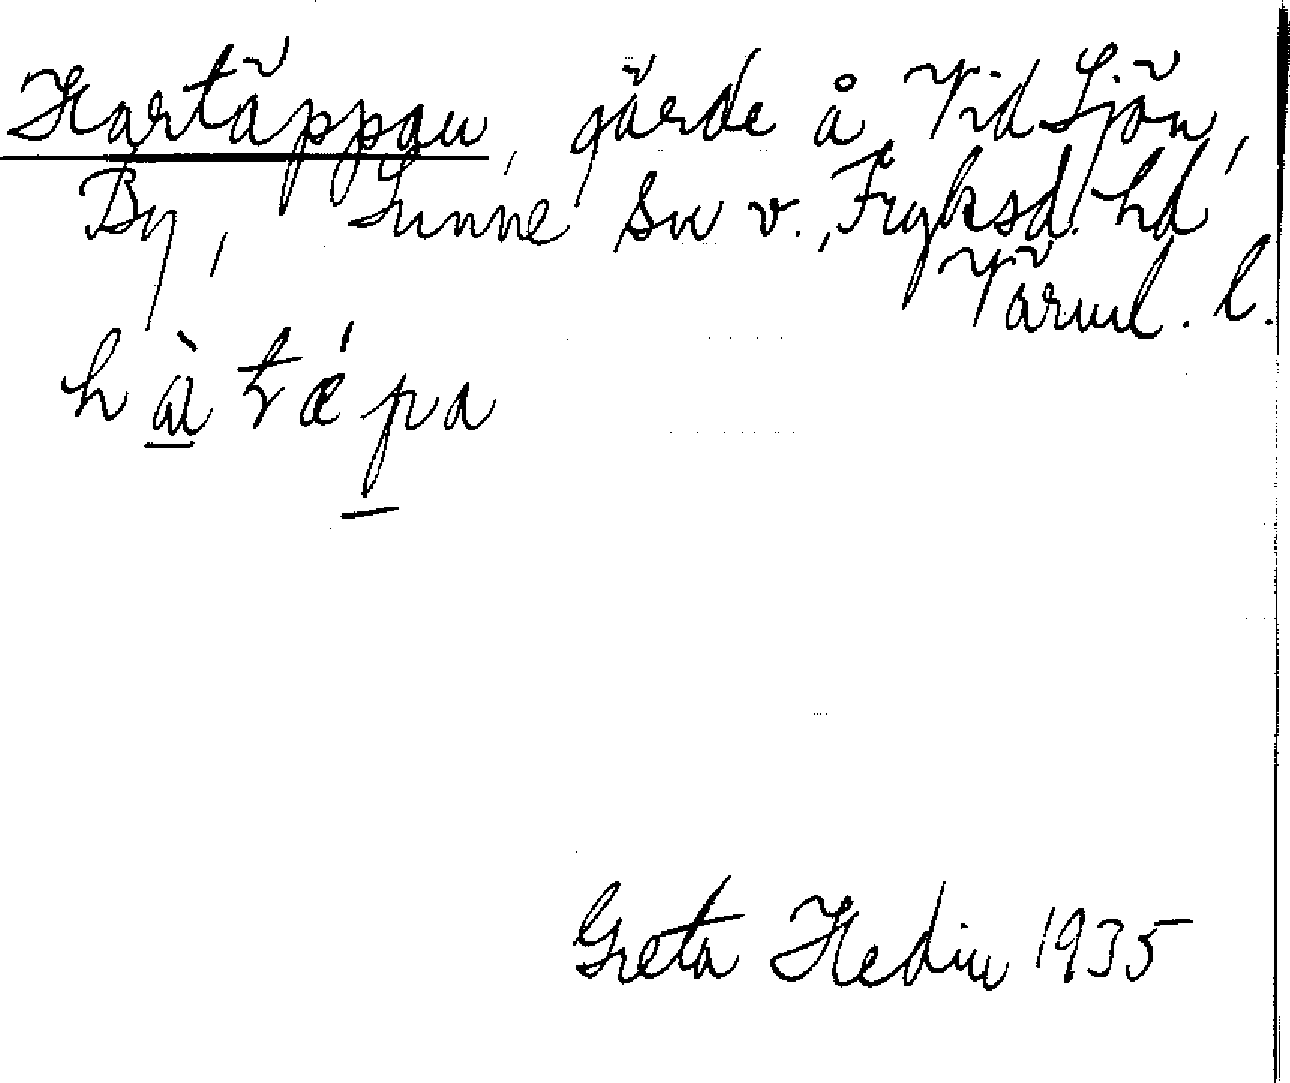 Hartäppan, gärde å Vid Sjön,
By, Sunne sn v., Fryksd. hd
Värml. l.
hà̱ tǽp̱a
Greta Hedin 1935